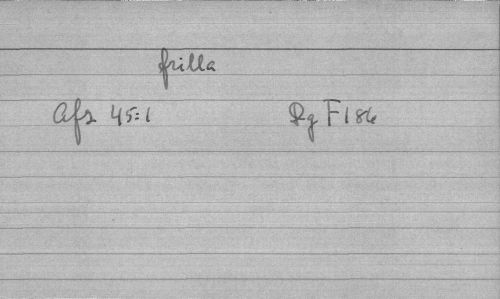 frilla
Afs 45:1 Rg F 186